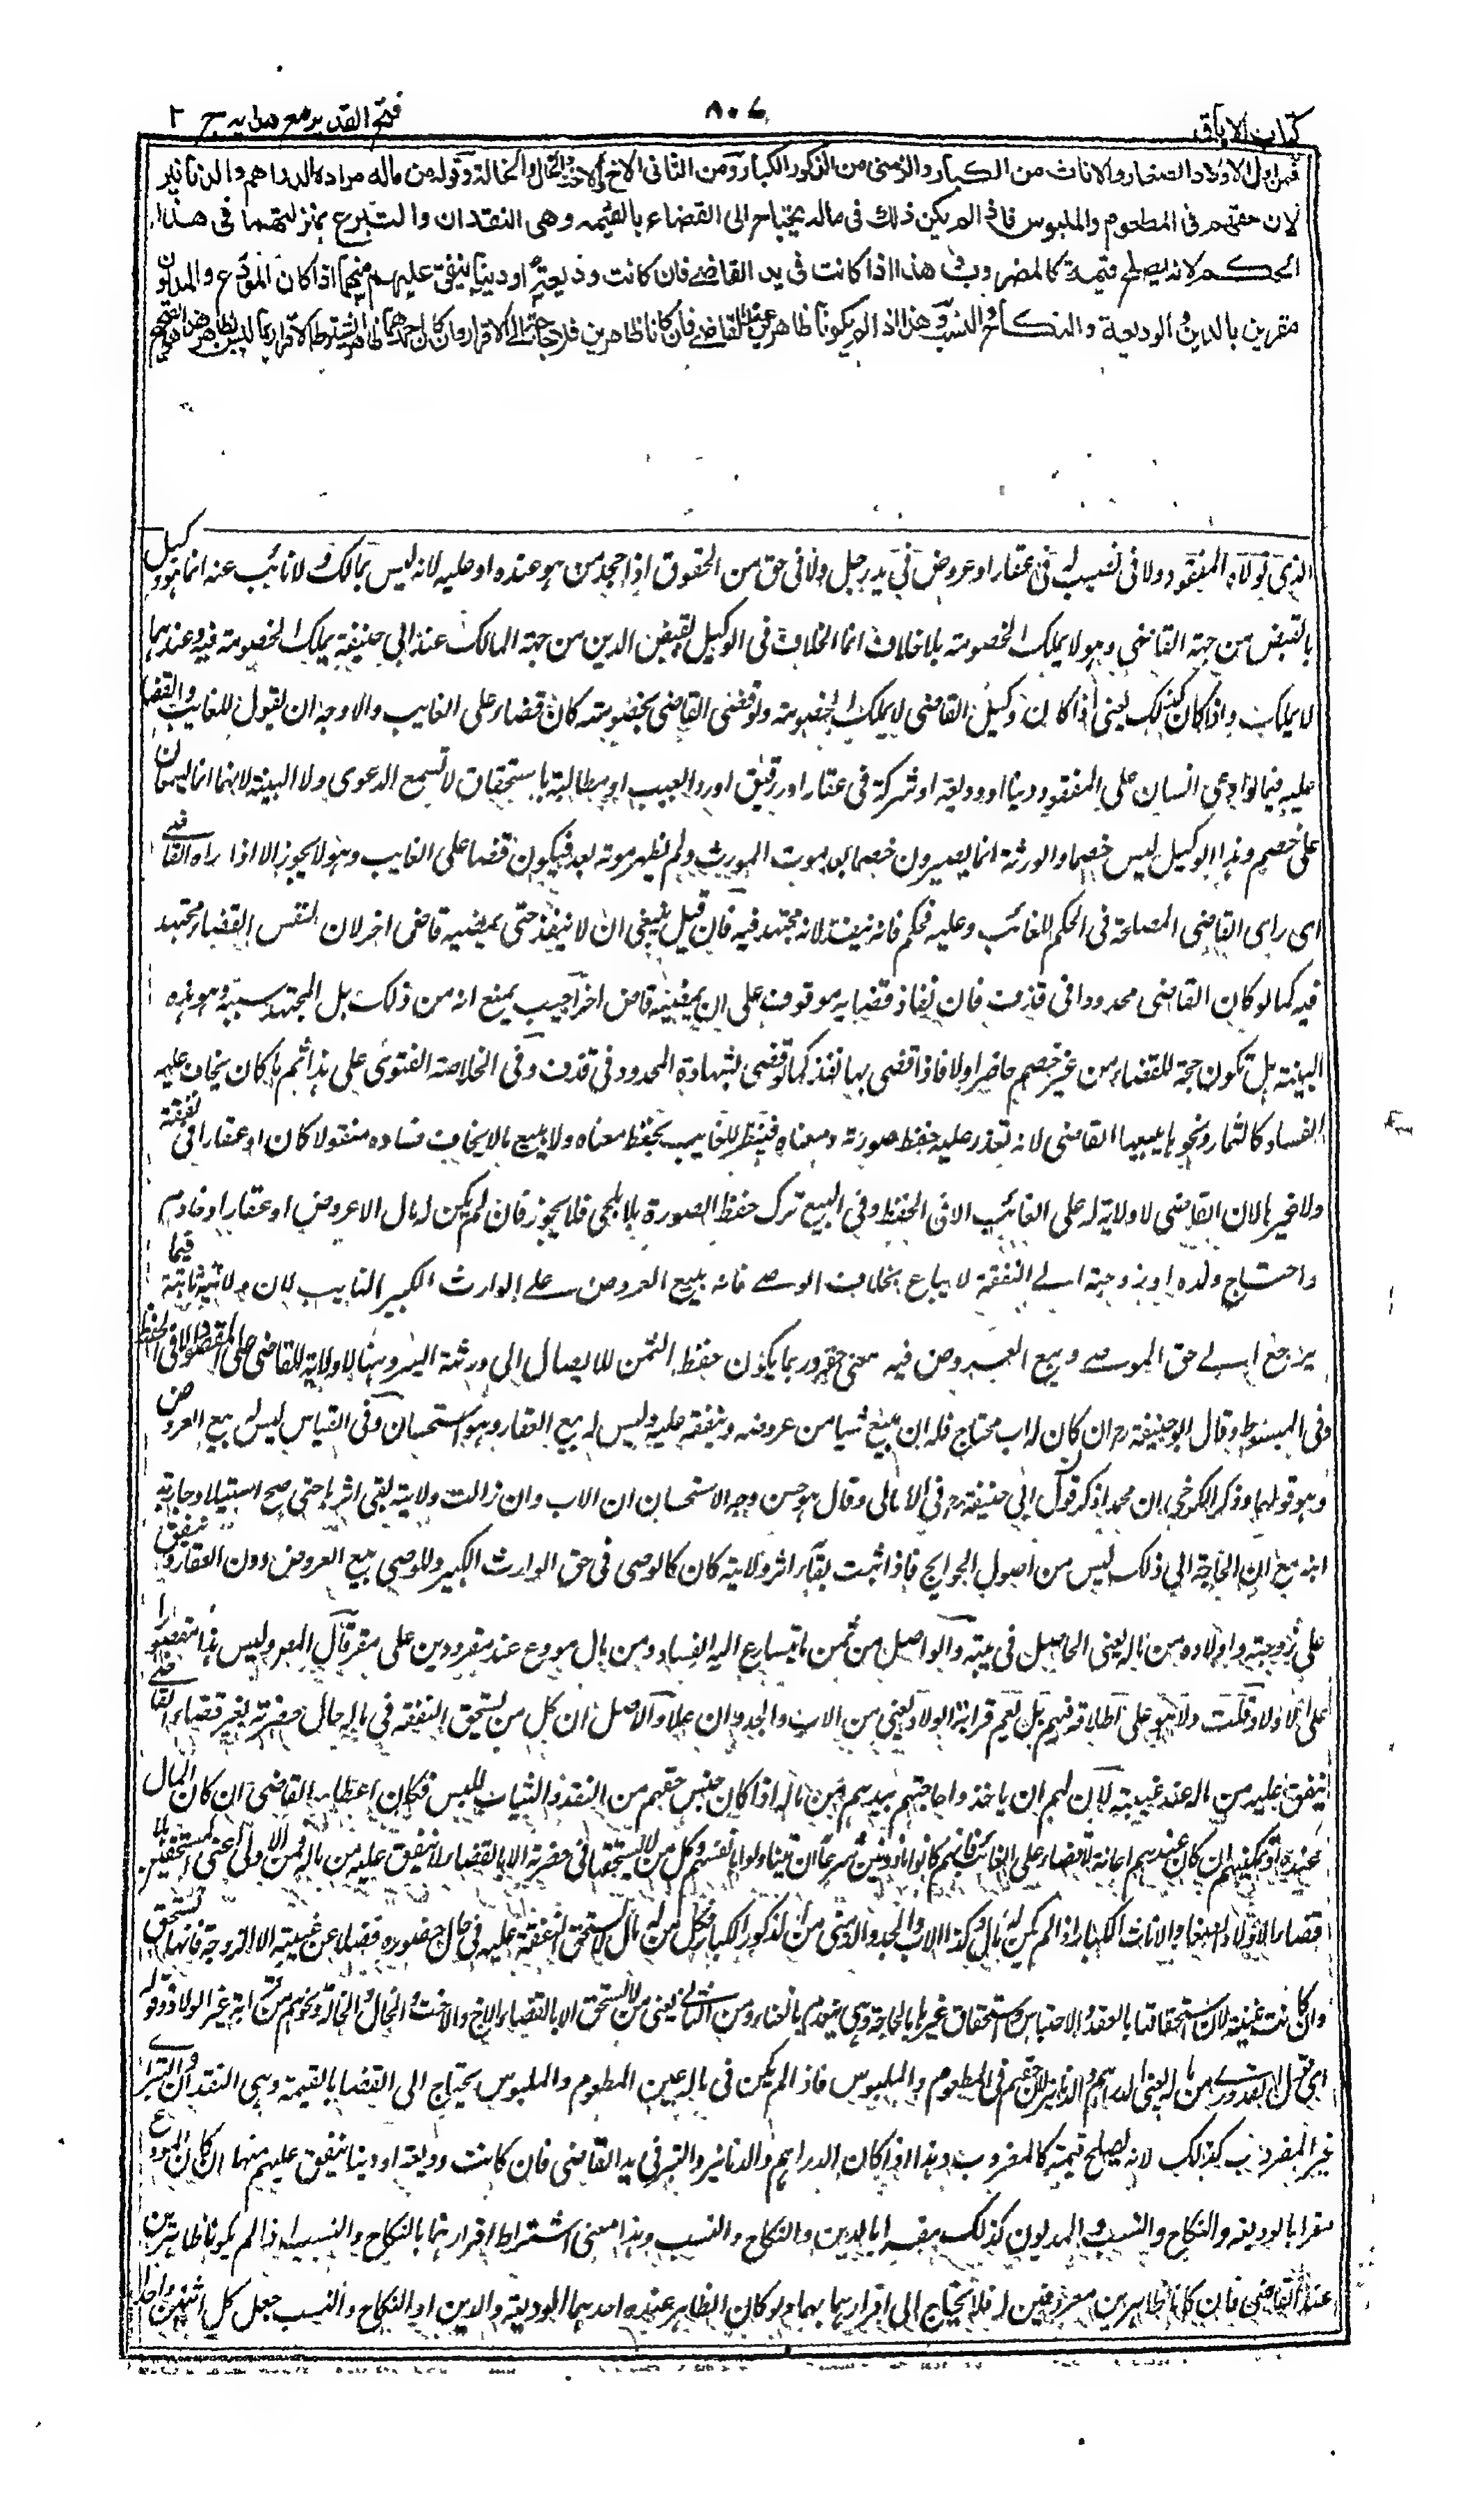 كتاب الاباق
٨٠٧
فتح القدير مع هدايه ج ٢
فمن الاول الاولاد الصغار والاناث من الكبار والزمنى من الذكور الكبار ومن الثانى الاخ والاخت والخال والخالة وقوله من ماله مراده الدراهم والدنانير
لان حقهم فى المطعوم والملبوس فاذا لم يكن ذلك فى ماله يحتاج الى القضاء بالقيمه وهى النقدان والتبر بمنزلتهما فى هذا
الحكم لانه يصلح قيمة كالمضروب وفى هذا اذا كانت فى يد القاضى فان كانت وديعة او دينا ينفق عليهم منهما اذا كان المودَع والمديون
مقرين بالدين والوديعة والنكاح والنسب وهذا اذا لم يكونا ظاهرين عند القاضى فان كانا ظاهرين فلا حاجة الى الاقرار وان كان احدهما ظاهر يشترط الاقرار بما ليس بظاهر هذا هو الصحيح
الذى تولاه المفقود ولا فى نصيب له فى عقار او عروض فى يد رجل ولا فى حق من الحقوق اذا جحد من هو عنده او عليه لانه ليس بمالك ولا نائب عنه انما هو وكيل
بالقبض من جهة القاضى وهو لا يملك الخصومة بلا خلاف انما الخلاف فى الوكيل بقبض الدين من جهة المالك عند ابى حنيفة يملك الخصومة فيه وعندهما
لا يملك واذا كان كذلك يعنى اذا كان وكيل القاضى لا يملك الخصومة ولو قضى القاضى بخصومته كان قضاء على الغايب والاوجه ان يقول للغايب والقضاء
عليه فيما لو ادعى انسان على المفقود دينا او وديعة او شركة فى عقار او رقيق او رد العيب او مطالبة باستحقاق لا تسمع الدعوى ولا البينة لانهما انما يسمعان
على خصم وهذا الوكيل ليس خصما والورثة انما يصيرون خصما بعد موت المورث ولم يظهر موته بعد فيكون قضا على الغايب وهو لا يجوز الا اذا راه القاضى
اى راى القاضى المصلحة فى الحكم للغائب وعليه فحكم فانه ينفذ لانه مجتهد فيه فان قيل ينبغى ان لا ينفذ حتى يمضيه قاضى اخر لان النفس القضاء مجتهد
فيه كما لو كان القاضى محدودا فى قذف فان نفاذ قضايه موقوف على ان يمضيه قاض اخر اجيب بمنع انه من ذلك بل المجتهد سببه وهو هذه
البينة هل تكون حجة للقضاء من غير خصم حاضر اولا فاذا قضى بها نفذ كما لو قضى بشهادة المحدود فى قذف وفى الخلاصة الفتوى على هذا ثم ما كان يخاف عليه
الفساد كالثمار ونحوها يبيعها القاضى لانه تعذر عليه حفظ صورته ومعناه فينظر للغايب بحفظ معناه ولا يبيع مالا يخاف فساده منقولا كان او عقارا فى نفقة
ولا غيرها لان القاضى لا ولاية له على الغائب الا فى الحفظ وفى البيع ترك حفظ الصورة بلا ملجى فلا يجوز فان لم يكن له مال الا عروض او عقار او خادم
واحتاج ولده او زوجته الى النفقة لا يباع بخلاف الوصى فانه يبيع العروض على الوارث الكبير الغايب لان ولايته ثابتة فيما
يرجع الى حق الموصى وبيع العروض فيه معنى حقه وربما يكون حفظ الثمن للايصال الى ورثته ايسر وهنا لا ولاية للقاضى على المفقود الا فى الحفظ
وفى المبسوط وقال ابو حنيفة رح ان كان له اب محتاج فله ان يبيع شيا من عروضه وينفقه عليه وليس له بيع العقار وهو استحسان وفى القياس ليس له بيع العروض
وهو قولهما وذكر الكرخى ان محمدا ذكر قول ابى حنيفة رح فى الامالى وقال هو حسن وجه الاستحسان ان الاب وان زالت ولايته بقى اثرها حتى صح استيلاد جارية
ابنه مع ان الحاجة الى ذلك ليس من اصول الحوايج فاذا ثبت بقاء اثر ولايته كان كالوصى فى حق الوارث الكبير وللوصى بيع العروض دون العقار وينفق
على زوجته واولاده من ماله يعنى الحاصل فى بيته والواصل من ثمن ما يتسارع اليه الفساد ومن مال مودع عند مقر ودين على مقر قال المص وليس هذا مقصورا
على الاولاد قلت ولا هو على اطلاقه فيهم بل يعم قرابة الولاد يعنى من الاب والجد وان علا والاصل ان كل من يستحق النفقه فى ماله حال حضرته بغير قضاء القاضى
ينفق عليه من ماله عند غيبته لان لهم ان ياخذوا حاجتهم بيدهم من ماله اذا كان جنس حقهم من النقد والثياب للبس فكان اعطاء القاضى ان كان المال
عنده او تمكينهم ان كان عندهم اعانة لا قضاء على الغائب فانهم كانوا ماذونين شرعا ان يتناولوا بانفسهم وكل من لا يستحقها فى حضرته الا بالقضاء لا ينفق عليه من ماله فمن الاول اعنى المستحقين بلا
قضاء الاولاد الصغار والاناث الكبار اذا لم يكن لهم مال وكذا الاب والجد والزمنى من الذكور الكبار فكل من له مال لا يستحق النفقة عليه فى حال حضوره فضلا عن غيبته الا الزوجة فانها تستحق
وان كانت غنية لان استحقاقها بالعقد والاحتباس واستحقاق غيرها بالحاجة وهى تنعدم بالغنا ومن الثانى يعنى من لا يستحق الا بالقضاء الاخ والاخت والخال والخالة ونحوهم من قرابة غير الولاد وقوله
اى قول القدورى من ماله يعنى الدراهم والدنانير لان حقهم فى المطعوم والملبوس فاذا لم يكن فى ماله عين المطعوم والملبوس يحتاج الى القضا بالقيمة وهى النقدان والتبر
غير المضروب كذلك لانه يصلح قيمة كالمضروب وهذا اذا كان الدراهم والدنانير والتبر فى يد القاضى فان كانت وديعة او دينا ينفق عليهم منهما ان كان المودع
مقرا بالوديعه والنكاح والنسب والمديون كذلك مقرا بالدين والنكاح والنسب وهذا معنى اشتراط اقرارهما بالنكاح والنسب اذا لم يكونا ظاهرين
عند القاضى فان كانا ظاهرين معروفين له فلا يحتاج الى اقرارهما بهما ولو كان الظاهر عنده احدهما الوديعة والدين او النكاح والنسب جعل كل اثنين واحدا